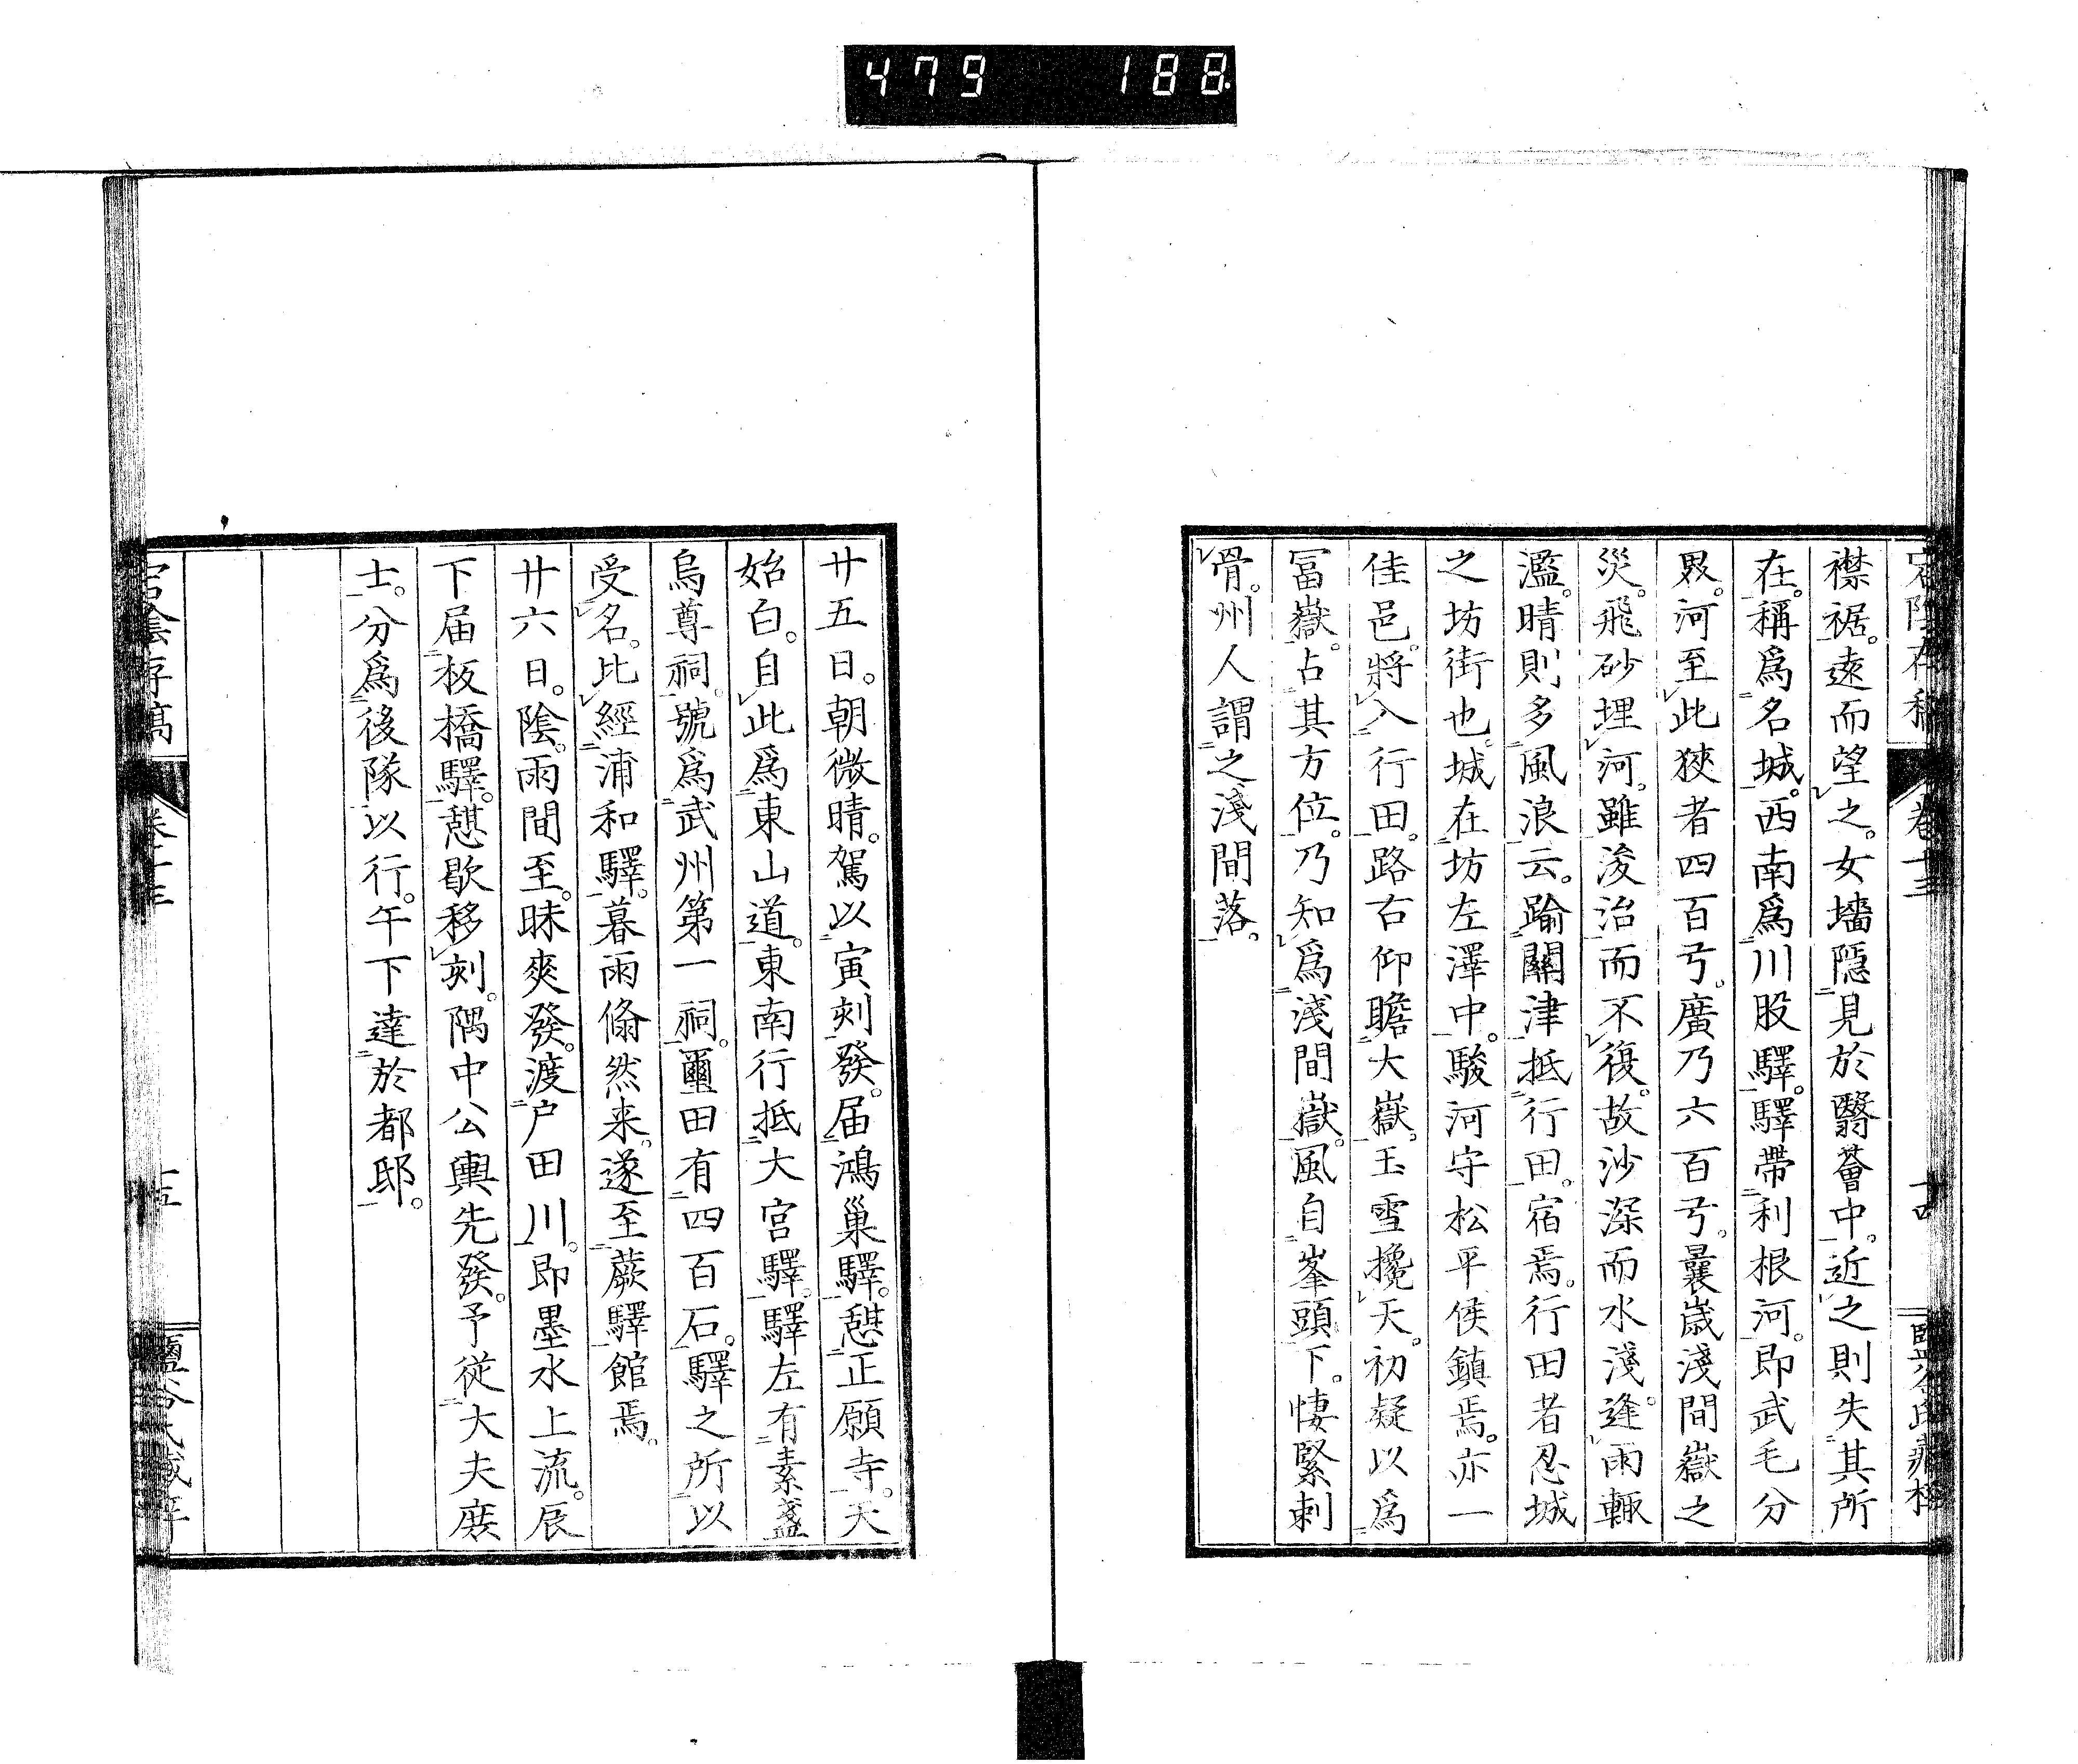 479 188
宕陰存稿 卷十三 十四
襟裾。遠而望之。女墻隱見於翳薈中。近之則失其所
在。稱爲名城。西南爲川股驛。驛帶利根河。即武毛分
界。河至此狹者四百弓。廣乃六百弓。曩歲淺間嶽之
災。飛砂埋河。雖浚治而不復。故沙深而水淺。逢雨輒
濫。晴則多風浪云。踰關津抵行田。宿焉。行田者忍城
之坊街也。城在坊左澤中。駿河守松平侯鎮焉。亦一
佳邑。將入行田。路右仰瞻大嶽。玉雪攙天。初疑以爲
冨嶽。占其方位。乃知爲淺間嶽。風自峯頭下。悽緊刺
骨。州人謂之淺間落。
廿五日。朝微晴。駕以寅刻發。届鴻巢驛。憇正願寺。天
始白。自此爲東山道。東南行抵大宮驛。驛左有素盞
烏尊祠。號爲武州第一祠。壐田有四百石。驛之所以
受名。比經浦和驛。暮雨翛然来。遂至蕨驛館焉。
廿六日。陰。雨間至。昧爽發。渡户田川。即墨水上流。辰
下届板橋驛。憇歇移刻。隅中公輿先發。予従大夫廣
士。分爲後隊以行。午下達於都邸。
宕陰存稿 卷十三 十五